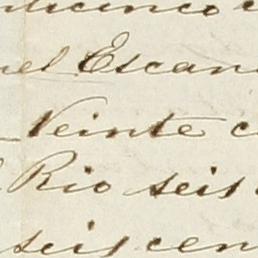 nticinco
el Escan
Veinte c
Rio seis
seiscen